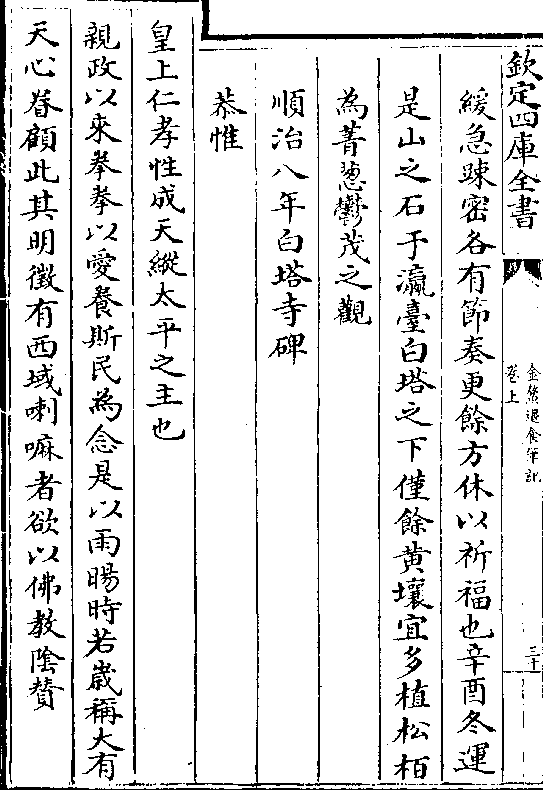 欽定四庫全書
金鰲退食筆記
卷上
三十
緩急踈密各有節奏更餘方休以祈福也辛酉冬運
是山之石于瀛臺白塔之下僅餘黄壤宜多植松栢
為菁葱鬱茂之觀
順治八年白塔寺碑
恭惟
皇上仁孝性成天縱太平之主也
親政以來拳拳以愛養斯民為念是以雨暘時若嵗稱大有
天心眷顧此其明徵有西域喇嘛者欲以佛教陰賛